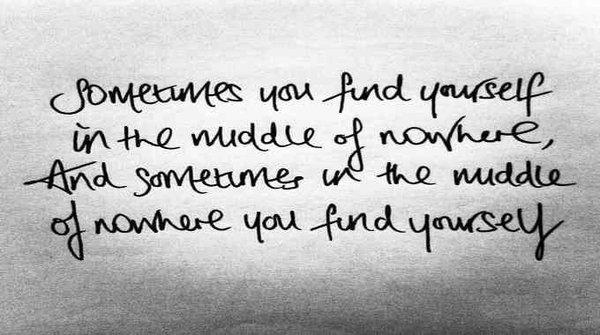 Sometimes you find yourself
in the middle of nowhere,
And sometimes in the middle
of nowhere you find yourself